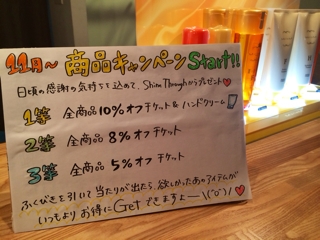 11月〜 商品キャンペーン Start!!
日頃の感謝の気持ちを込めて、Shim Throughからプレゼント♥
1等 全商品10%オフチケット&ハンドクリーム
2等 全商品8%オフチケット
3等 全商品5%オフチケット
ふくびきを引いて当たりが出たら、欲しかったあのアイテムが
いつもよりお得にGetできますよー\(^o^)/♥